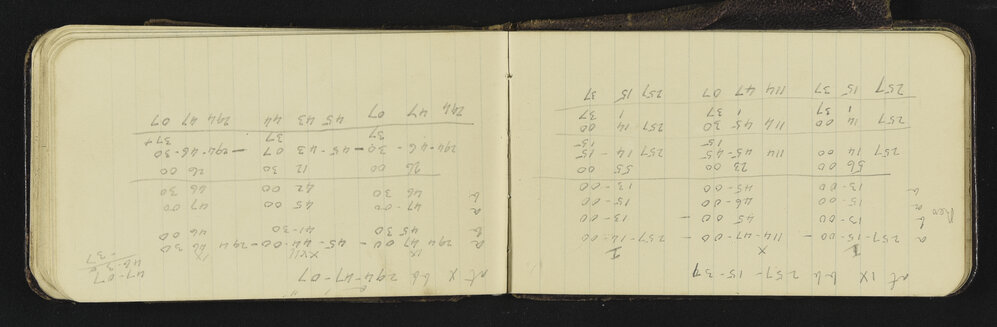 at IX bb 257-15-37
I X I
a 257-15-00 - 114-47-00 - 257-14-00
b 13-00 45 00 - 13-00
Rev a 15-00 46-00 15-00
b 13-00 45-00 13-00
56 00 23 00 55 00
257 14 00 114 45-45 257 14-15
15 15
257 14 00 114 45 30 257 14 00
1 37 1 37 1 37
257 15 37 114 47 07 257 15 37
at X bb 294-47-07
47-07
-37
IX XVII IX
a 294 47 00 - 45-44-00 - 294 46 30
b 45 30 41-30 46 00
a 47-00 45 00 47 00
b 46 30 42 00 46 30
26 00 12 30 26 00
294-46-30 - 45-43 07 - 294-46-30
37 37 37+
294 47 07 45 43 44 294 47 07